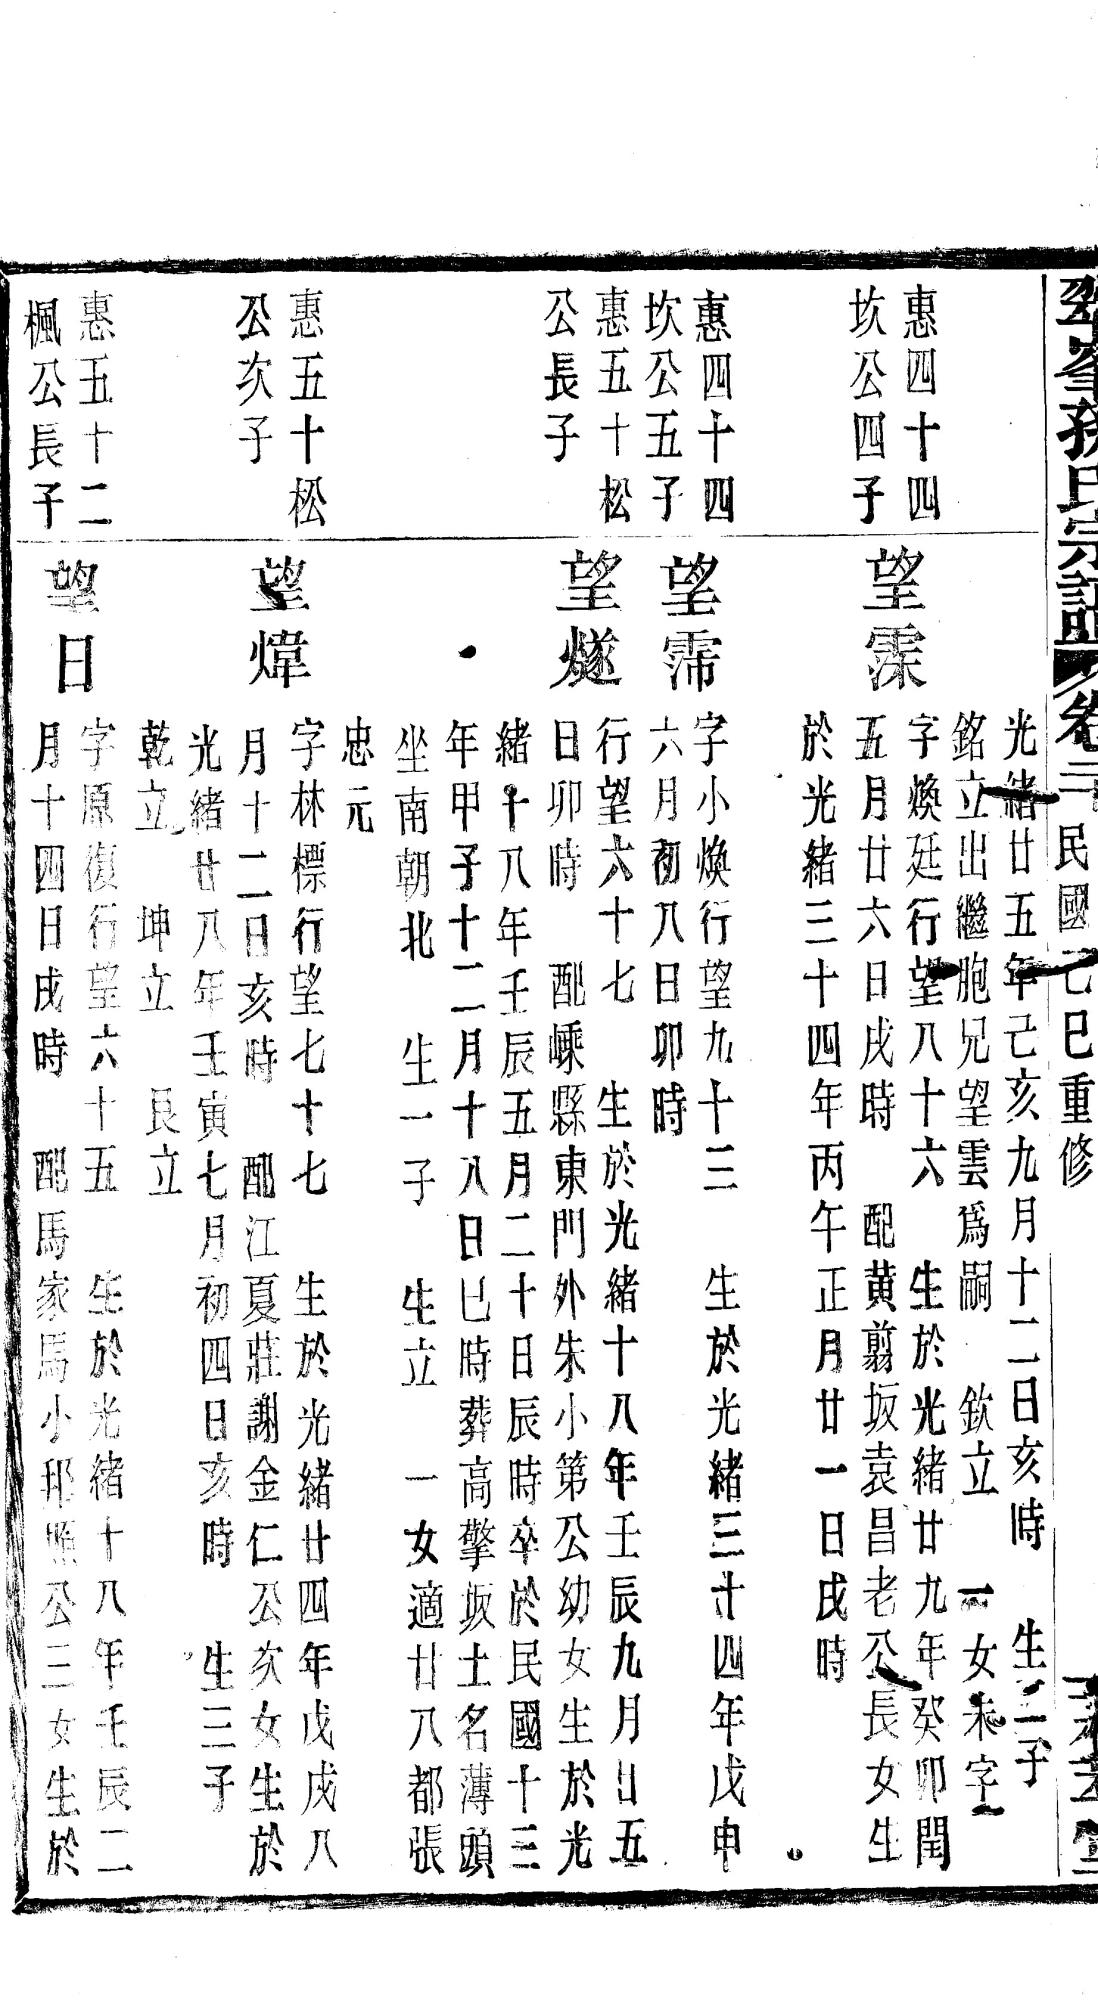 翠峯孫氏宗譜 卷二 民國己巳重修
光緒廿五年己亥九月十二日亥時 生二子
銘立出繼胞兄望雲為嗣 欽立 一女未字
惠四十四
坎公四子
望霂
字煥廷行望八十六 生於光緒廿九年癸卯閏
五月廿六日戌時 配黃翦坂袁昌老公長女生
於光緒三十四年丙午正月廿一日戌時
惠四十四
坎公五子
望霈
字小煥行望九十三 生於光緒三十四年戊申
六月初八日卯時
惠五十松
公長子
望燧
行望六十七 生於光緒十八年壬辰九月廿五
日卯時 配嵊縣東門外朱小第公幼女生於光
緒十八年壬辰五月二十日辰時卒於民國十三
年甲子十二月十八日巳時葬高擎坂土名薄頭
坐南朝北 生一子 生立 一女適廿八都張
忠元
惠五十松
公次子
望煒
字林標行望七十七 生於光緒廿四年戊戌八
月十二日亥時 配江夏莊謝金仁公次女生於
光緒廿八年壬寅七月初四日亥時 生三子
乾立 坤立 艮立
惠五十二
楓公長子
望日
字原復行望六十五 生於光緒十八年壬辰二
月十四日戌時 配馬家馬小邦照公三女生於